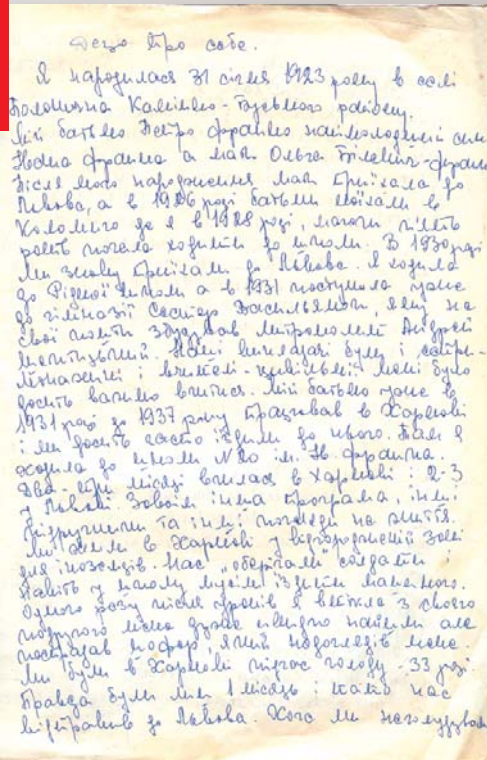 Дещо про себе.
Я народилася 31 січня 1923 року в селі
Полонична Камінко-Бузького району.
Мій батько Петро Франко наймолодший син
Івана Франка а мати Ольга Білевич-Франко
Після мого народження мати приїхала до
Львова, а в 1926 році батьки поїхали в
Коломию де я в 1928 році, маючи п'ять
років почала ходити до школи. В 1930 році
ми знову приїхали до Львова. Я ходила
до Рідної школи а в 1931 поступила уже
до гімназії Сестер Василіянок, яку на
свої кошти збудував митрополит Андрей
Шептицький. Нашi викладачі були і сестри-
монахині і вчителі-цивільні. Мені було
досить важко вчитися. Мій батько уже в
1931 році до 1937 року працював в Харкові
і ми досить часто їздили до нього. Там я
ходила до школи №20 ім. Ів. Франка.
Два-три місяці вчилася в Харкові і 2-3
у Львові. Зовсім інша програма, інші
підручники та інші погляди на життя.
Ми жили в Харкові у відгородженій зоні
для іноземців. Нас "оберігали" солдати і
навіть у школу мусіли їздити машиною.
Одного разу після уроків я втікла з своєю
подругою мене дуже швидко найшли але
постраждав шофер, який недогледів мене.
Ми були в Харкові підчас голоду - 33 році.
Правда були лиш 1 місяць і тато нас
відправив до Львова. Хоча ми не голодували